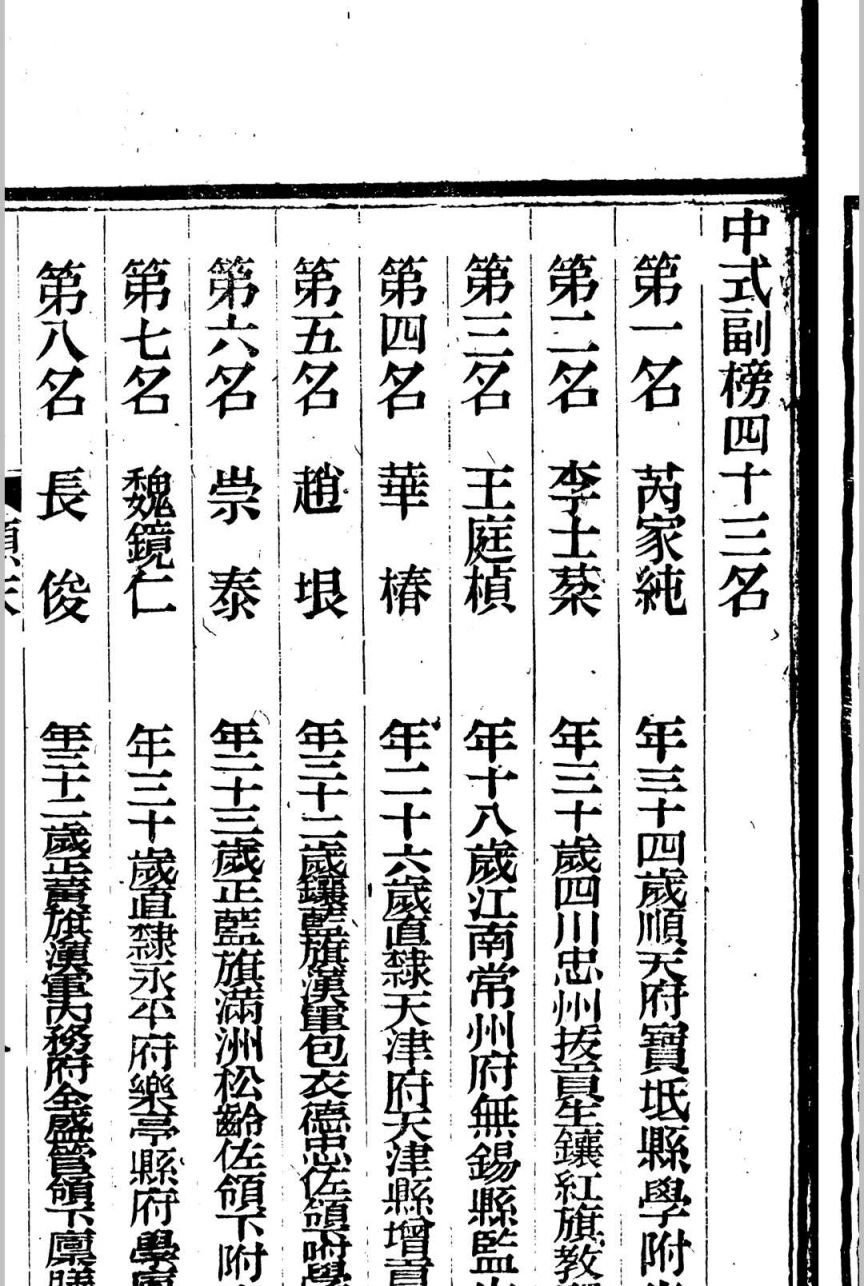 中式副榜四十三名
第一名 芮家純 年三十四歲順天府寶坻縣學附
第二名 李士棻 年三十歲四川忠州拔貢生鑲紅旗教
第三名 王庭楨 年十八歲江南常州府無錫縣監
第四名 華椿 年二十六歲直隸天津府天津縣增貢
第五名 趙垠 年三十二歲鑲藍旗漢軍包衣德忠佐領下附學
第六名 崇泰 年二十三歲正藍旗滿洲松齡佐領下附
第七名 魏鏡仁 年三十歲直隸永平府樂亭縣府學廩
第八名 長俊 年三十二歲正黃旗漢軍內務府全盛管領下廩膳